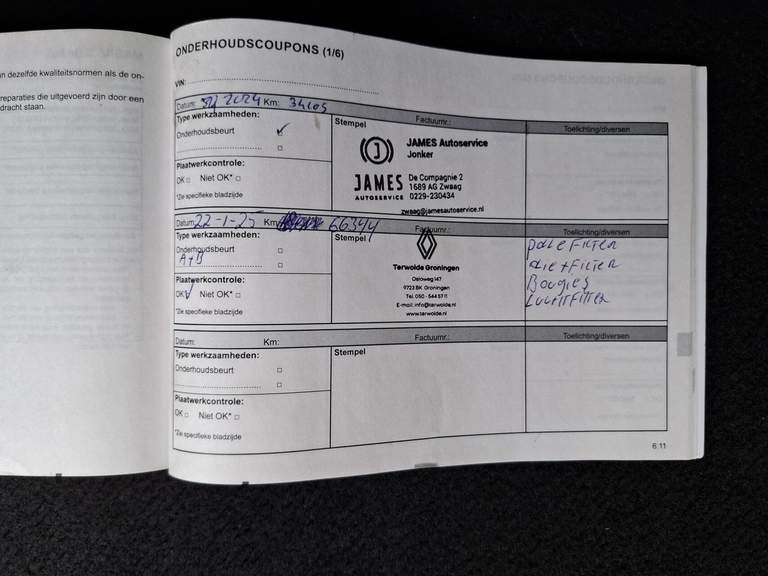 n dezelfde kwaliteitsnormen als de on-
reparaties die uitgevoerd zijn door een
dracht staan.
ONDERHOUDSCOUPONS (1/6)
VIN:
Datum: 2024 Km: 34605 Factuurnr.:
Type werkzaamheden:
Onderhoudsbeurt
Plaatwerkcontrole:
OK Niet OK*
*Zie specifieke bladzijde
Stempel
JAMES Autoservice
Jonker
JAMES
AUTOSERVICE
De Compagnie 2
1689 AG Zwaag
0229-230434
zwaag@jamesautoservice.nl
Toelichting/diversen
Datum: 22-1-25 Km: 66344 Factuurnr.:
Type werkzaamheden:
Onderhoudsbeurt
A+B
Plaatwerkcontrole:
OK Niet OK*
*Zie specifieke bladzijde
Stempel
Terwolde Groningen
Osloweg 147
9723 BK Groningen
Tel. 050 - 544 57 11
E-mail: info@terwolde.nl
www.terwolde.nl
Toelichting/diversen
FILTER
FILTER
Bougies
Luchtfilter
Datum: Km: Factuurnr.:
Type werkzaamheden:
Onderhoudsbeurt
Plaatwerkcontrole:
OK Niet OK*
*Zie specifieke bladzijde
Stempel
Toelichting/diversen
6.11